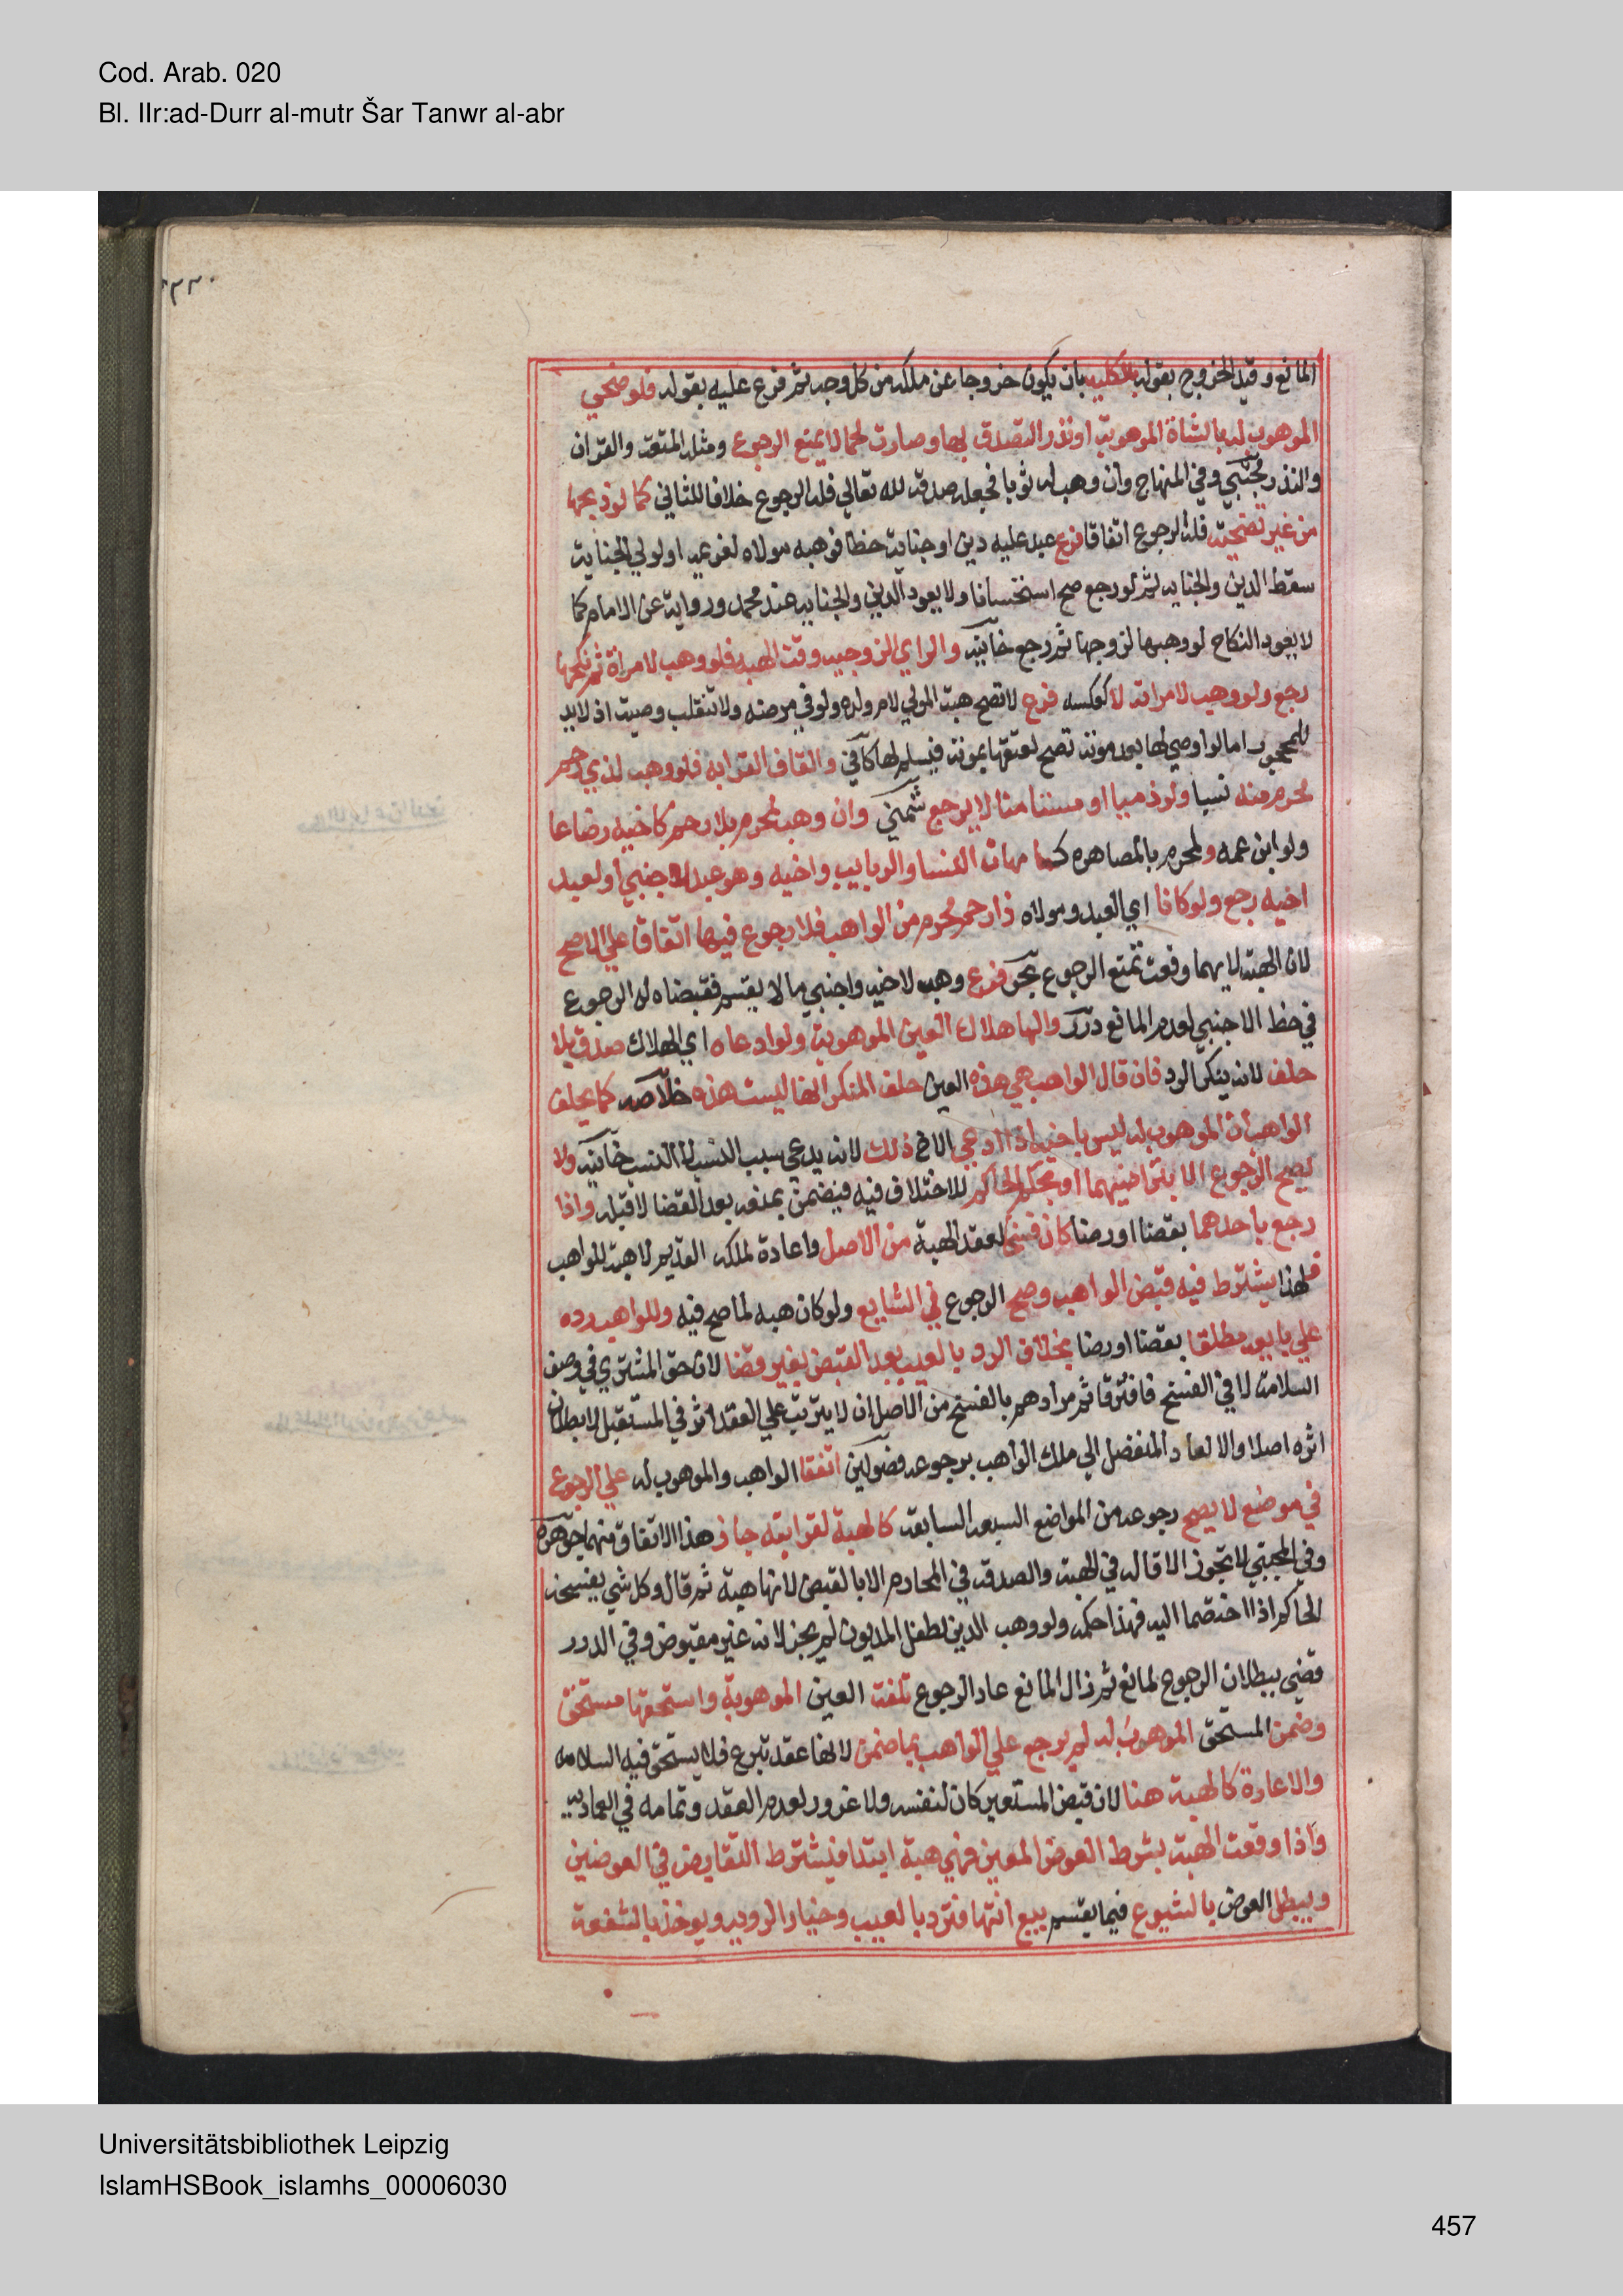 Cod. Arab. 020
Bl. IIr:ad-Durr al-mutr Šar Tanwr al-abr
٢٢٠
المانع وقيد الخروج بقوله بالكليه بان يكون خروجا عن ملكه من كل وجه ثم فرع عليه بقوله فلو ضحي
الموهوب له بالشاة الموهوبة او نذر التصدق بها وصارت لحما لا يمنع الرجوع ومثله المتعة والقران
والنذر مجتبي وفي المنهاج وان وهب له ثوبا فجعله صدقة لله تعالي فله الرجوع خلافا للثاني كما لو ذبحها
من غير تضحية فله الرجوع اتفاقا فرع عبد عليه دين او جناية خطا فوهبه مولاه لغريمه او لولي الجناية
سقط الدين والجنايه ثم لو رجع صح استحسانا ولا يعود الدين والجنايه عند محمد ورواية عن الامام كما
لا يعود النكاح لو وهبها لزوجها ثم رجع خانيه والزاي الزوجيه وقت الهبه فلو وهب لامراة ثم نكحها
رجع ولو وهب لامراته لا كعكسه فرع لا تصح هبة المولي لام ولده ولو في مرضه ولا تنقلب وصية اذ لا يد
للمحجور اما لو اوصي لها بعد موته تصح لعتقها بموته فيسلم لها كافي والقاف القرابه فلو وهب لذي رحم
محرم منه نسبا ولو ذميا او مستامنا لا يرجع شمني وان وهب لمحرم بلا رحم كاخيه رضاعا
ولو ابن عمه ولمحرم بالمصاهره كامهات النسا والربايب واخيه وهو عبد لاجنبي او لعبد
اخيه رجع ولو كانا اي العبد ومولاه ذا رحم محرم من الواهب فلا رجوع فيها اتفاقا علي الاصح
لان الهبة لايهما وقعت تمنع الرجوع بحر فرع وهب لاخيه واجنبي ما لا يقسم فقبضاه له الرجوع
في حظ الاجنبي لعدم المانع درر والها هلاك العين الموهوبة ولو ادعاه اي الهلاك صدق بلا
حلف لانه ينكر الرد فان قال الواهب هي هذه العين حلف المنكر انها ليست هذه خلاصه كما يحلف
الواهب ان الموهوب له ليس باخيه اذا ادعي الاخ ذلك لانه يدعي بسبب النسب لا النسب خانيه ولا
يصح الرجوع الا بتراضيهما او بحكم الحاكم للاختلاف فيه فيضمن بمنعه بعد القضا لا قبله واذا
رجع باحدهما بقضا او رضا كان فسخا لعقد الهبة من الاصل واعادة لملكه القديم لا هبة للواهب
فلهذا يشترط فيه قبض الواهب وصح الرجوع في الشايع ولو كان هبه لما صح فيه وللواهب رده
علي بايعه مطلقا بقضا او رضا بخلاف الرد بالعيب بعد القبض بغير قضا لان حق المشتري في وصف
السلامة لا في الفسخ فافترقا ثم مرادهم بالفسخ من الاصل ان لا يترتب علي العقد اثر في المستقبل لا بطلان
اثره اصلا والا لعاد المنفصل الي ملك الواهب برجوعه فصولين اتفقا الواهب والموهوب له علي الرجوع
في موضع لا يصح رجوعه من المواضع السبعه السابقه كالهبة لقرابته جاز هذا الاتفاق منهما جوهره
وفي المجتبي لا تجوز الاقاله في الهبة والصدقة في المحارم الا بالقبض لانها هبة ثم قال وكل شي يفسخه
الحاكم اذا اختصما اليه فهذا حكمه ولو وهب الدين لطفل المديون لم يجز لانه غير مقبوض وفي الدرر
قضي ببطلان الرجوع لمانع ثم زال المانع عاد الرجوع تلفت العين الموهوبة واستحقها مستحق
وضمن المستحق الموهوب له لم يرجع علي الواهب بما ضمن لانها عقد تبرع فلا يستحق فيه السلامه
والاعارة كالهبة هنا لان قبض المستعير كان لنفسه ولا غرور لعدم العقد وتمامه في العماديه
واذا وقعت الهبة بشرط العوض المعين فهي هبة ابتدا فيشترط التقابض في العوضين
ويبطل العوض بالشيوع فيما يقسم بيع انتها فترد بالعيب وخيار الرويه ويوخذ بالشفعة
Universitätsbibliothek Leipzig
IslamHSBook_islamhs_00006030
457